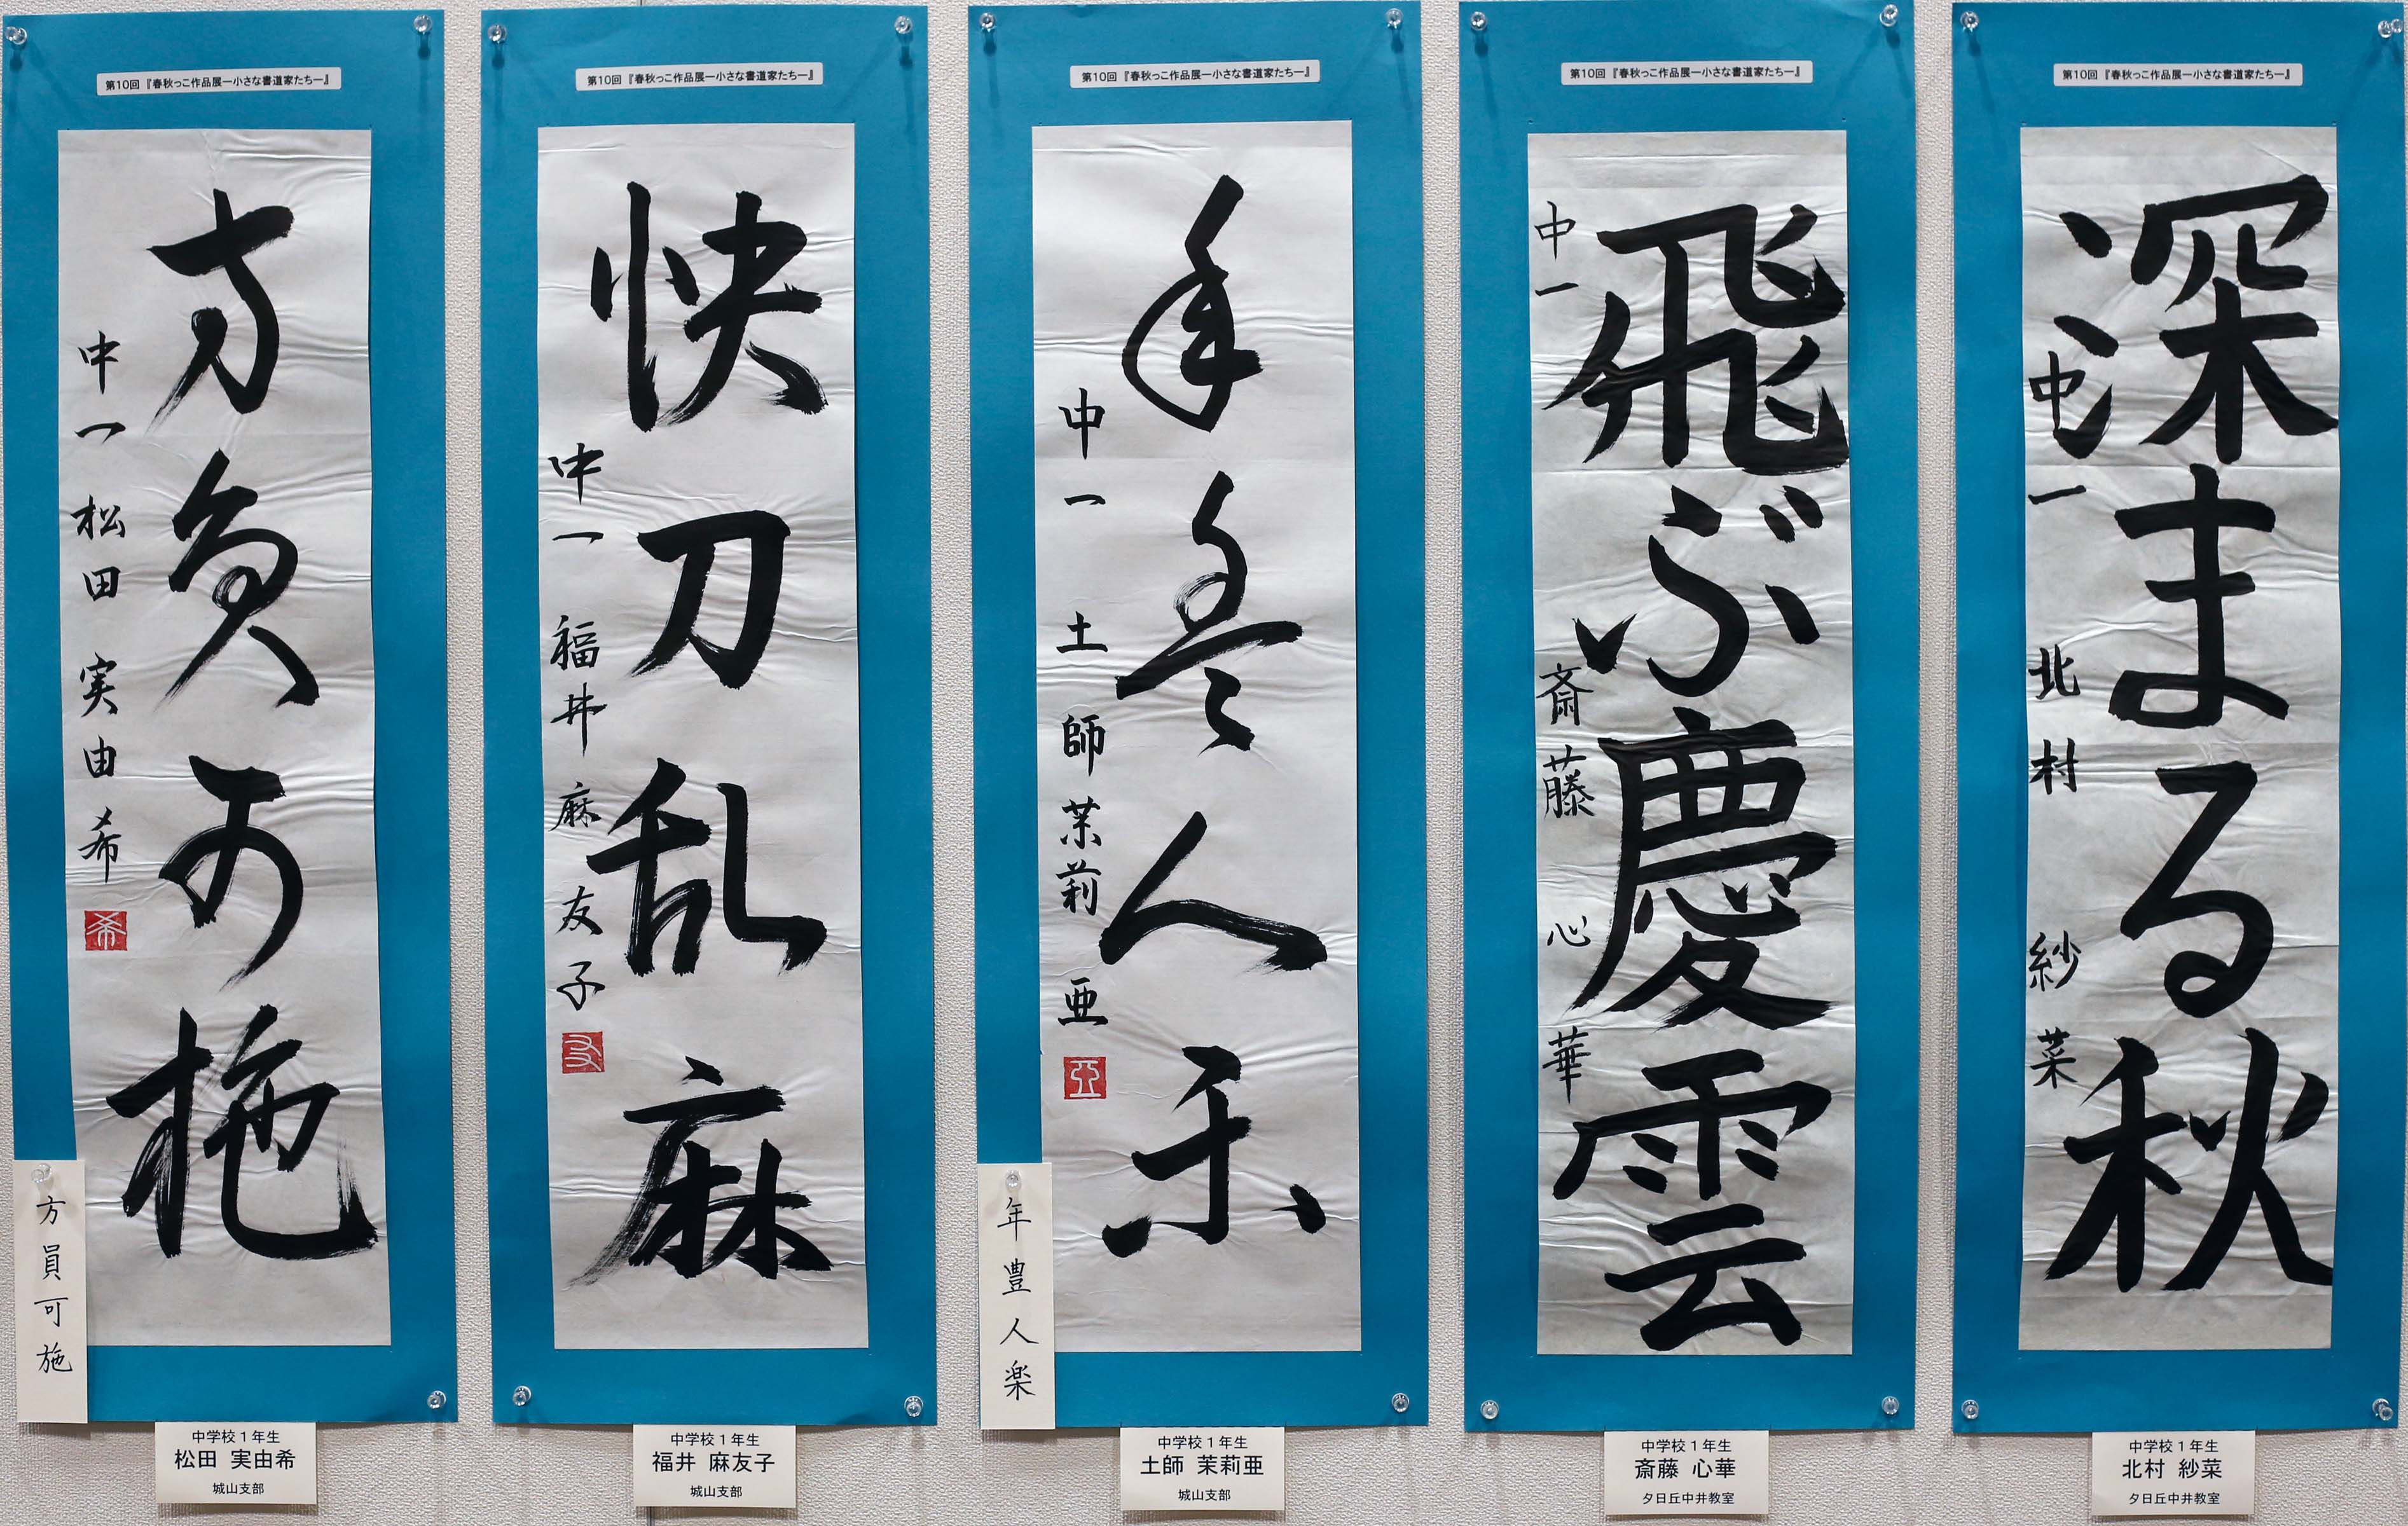 第10回『春秋っこ作品展―小さな書道家たち―』
方員可施
中一 松田 実由希
希
方員可施
中学校1年生
松田 実由希
城山支部
第10回『春秋っこ作品展―小さな書道家たち―』
快刀乱麻
中一 福井 麻友子
友
中学校1年生
福井 麻友子
城山支部
第10回『春秋っこ作品展―小さな書道家たち―』
年豊人楽
中一 土師 茉莉亜
亞
年豊人楽
中学校1年生
土師 茉莉亜
城山支部
第10回『春秋っこ作品展―小さな書道家たち―』
飛ぶ慶雲
中一 斎藤 心華
中学校1年生
斎藤 心華
夕日丘中井教室
第10回『春秋っこ作品展―小さな書道家たち―』
深まる秋
中一 北村 紗菜
中学校1年生
北村 紗菜
夕日丘中井教室